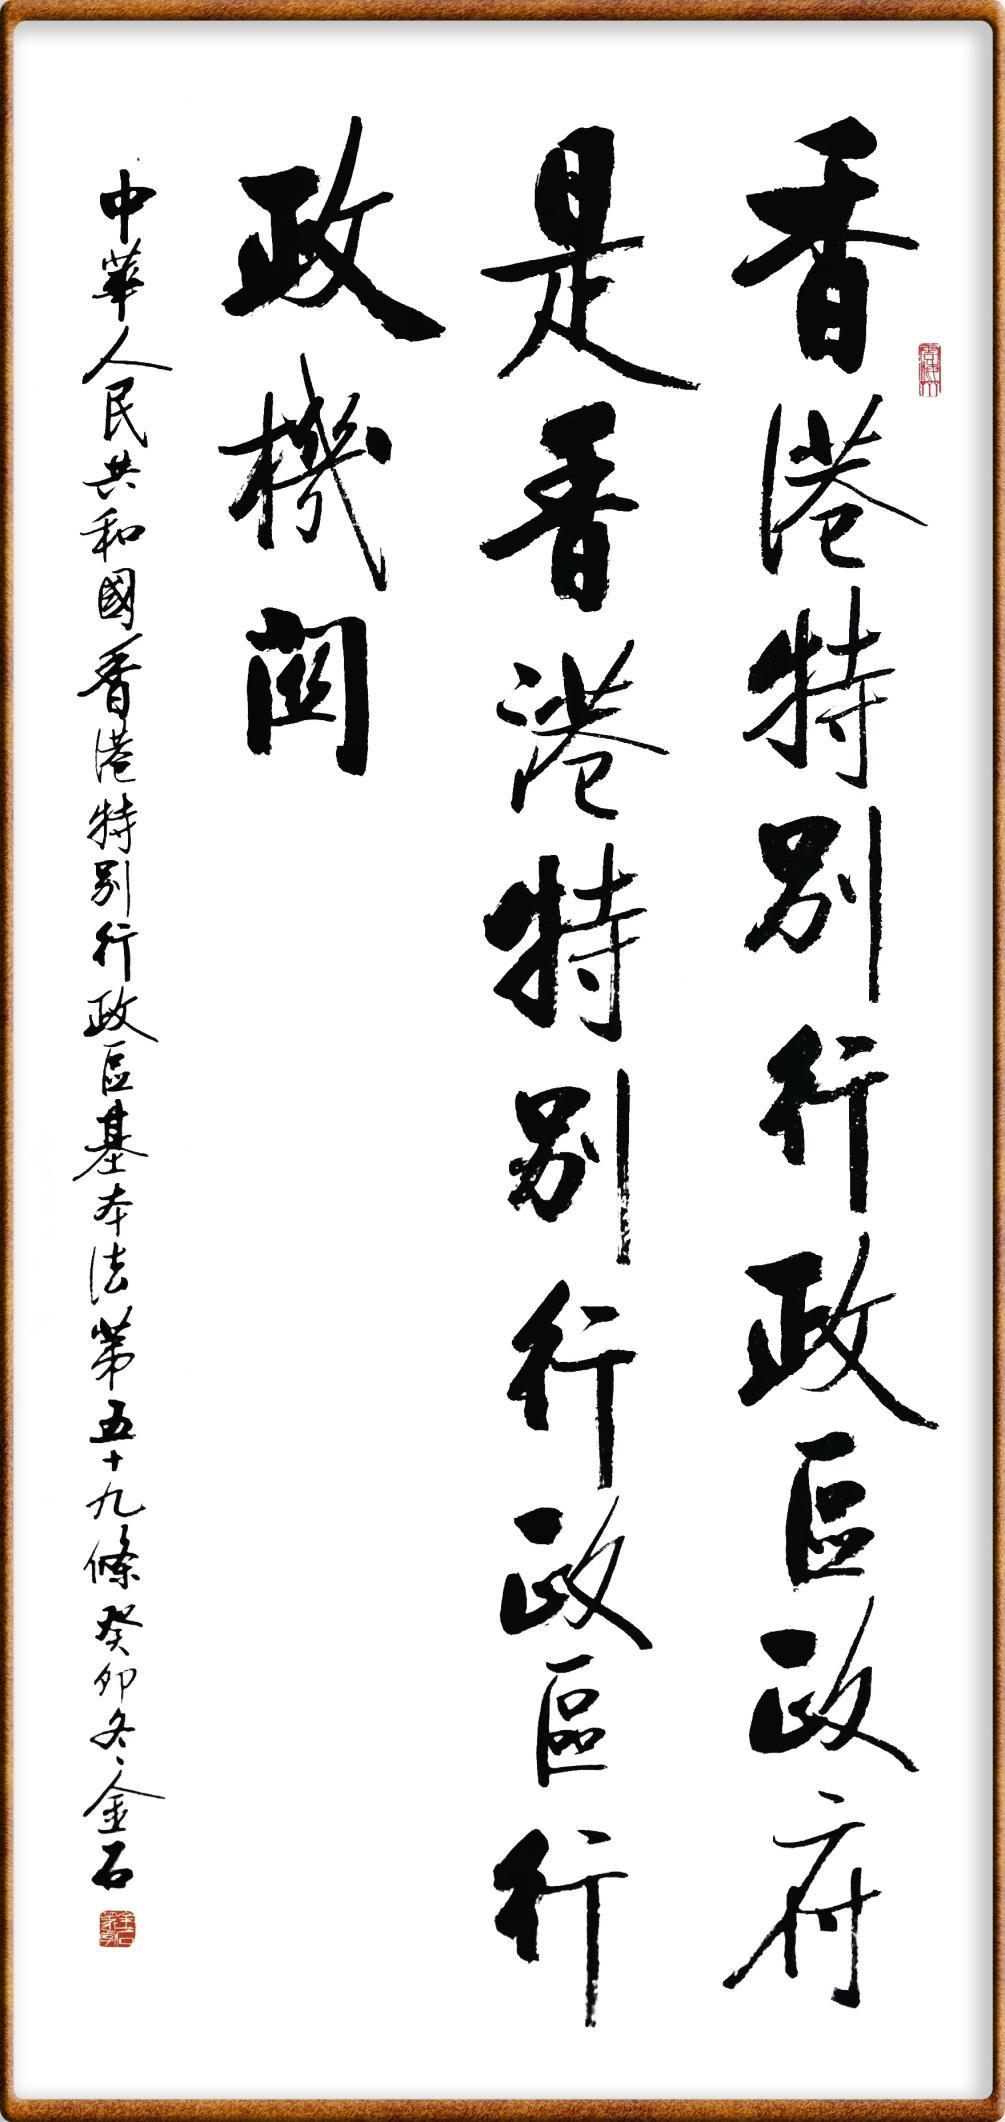 香港特别行政區政府
是香港特别行政區行
政機関
中華人民共和國香港特别行政區基本法第五十九條癸卯冬金石